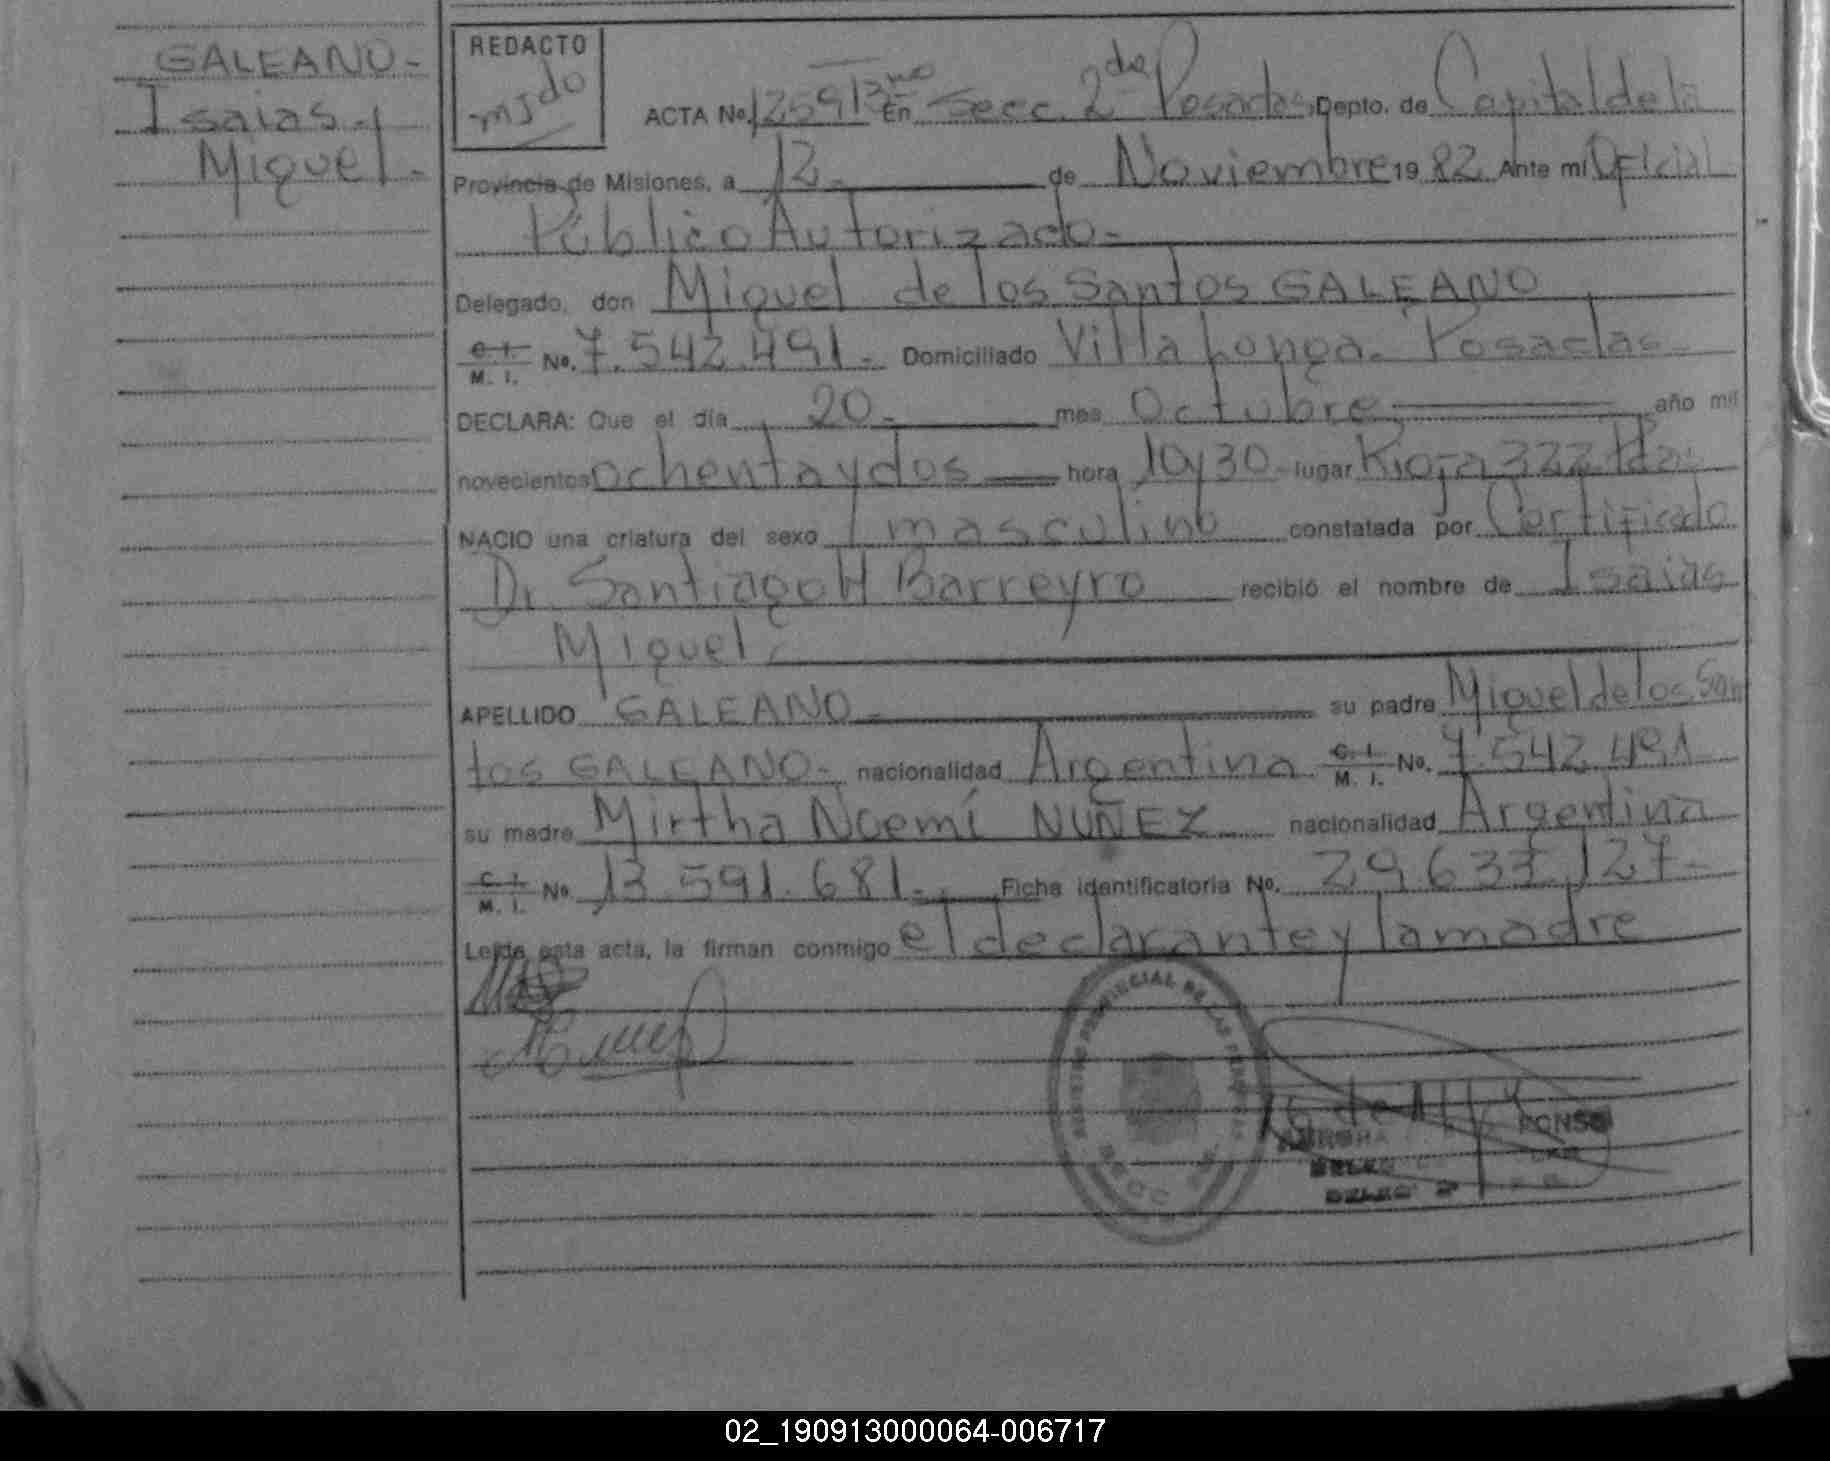 GALEANO-
Isaias
Miguel.-
REDACTO
mjdo
ACTA No. 1259 En Secc. 2da Posadas Depto. de Capital de la
Provincia de Misiones, a 12.- de Noviembre 1982 Ante mí Oficial
Público Autorizado-
Delegado, don Miguel de los Santos GALEANO
C. I. M. I. No. 7.542.491.- Domiciliado Villa Longa. Posadas-
DECLARA: Que el día 20.- mes Octubre año mil
novecientos ochenta y dos hora 10y30 lugar Rioja 322 Pdas
NACIO una criatura del sexo masculino constatada por Certificado
Dr. Santiago H Barreyro recibió el nombre de Isaias
Miguel.
APELLIDO GALEANO- su padre Miguel de los San
tos GALEANO- nacionalidad Argentina C. I. M. I. No. 7.542.491
su madre Mirtha Noemí NUÑEZ nacionalidad Argentina
C. I. M. I. No. 13.591.681.- Ficha identificatoria No. 29.633.127-
Leída esta acta, la firman conmigo el declarante y la madre
REGISTRO PROVINCIAL DE LAS PERSONAS
SECC
02_190913000064-006717